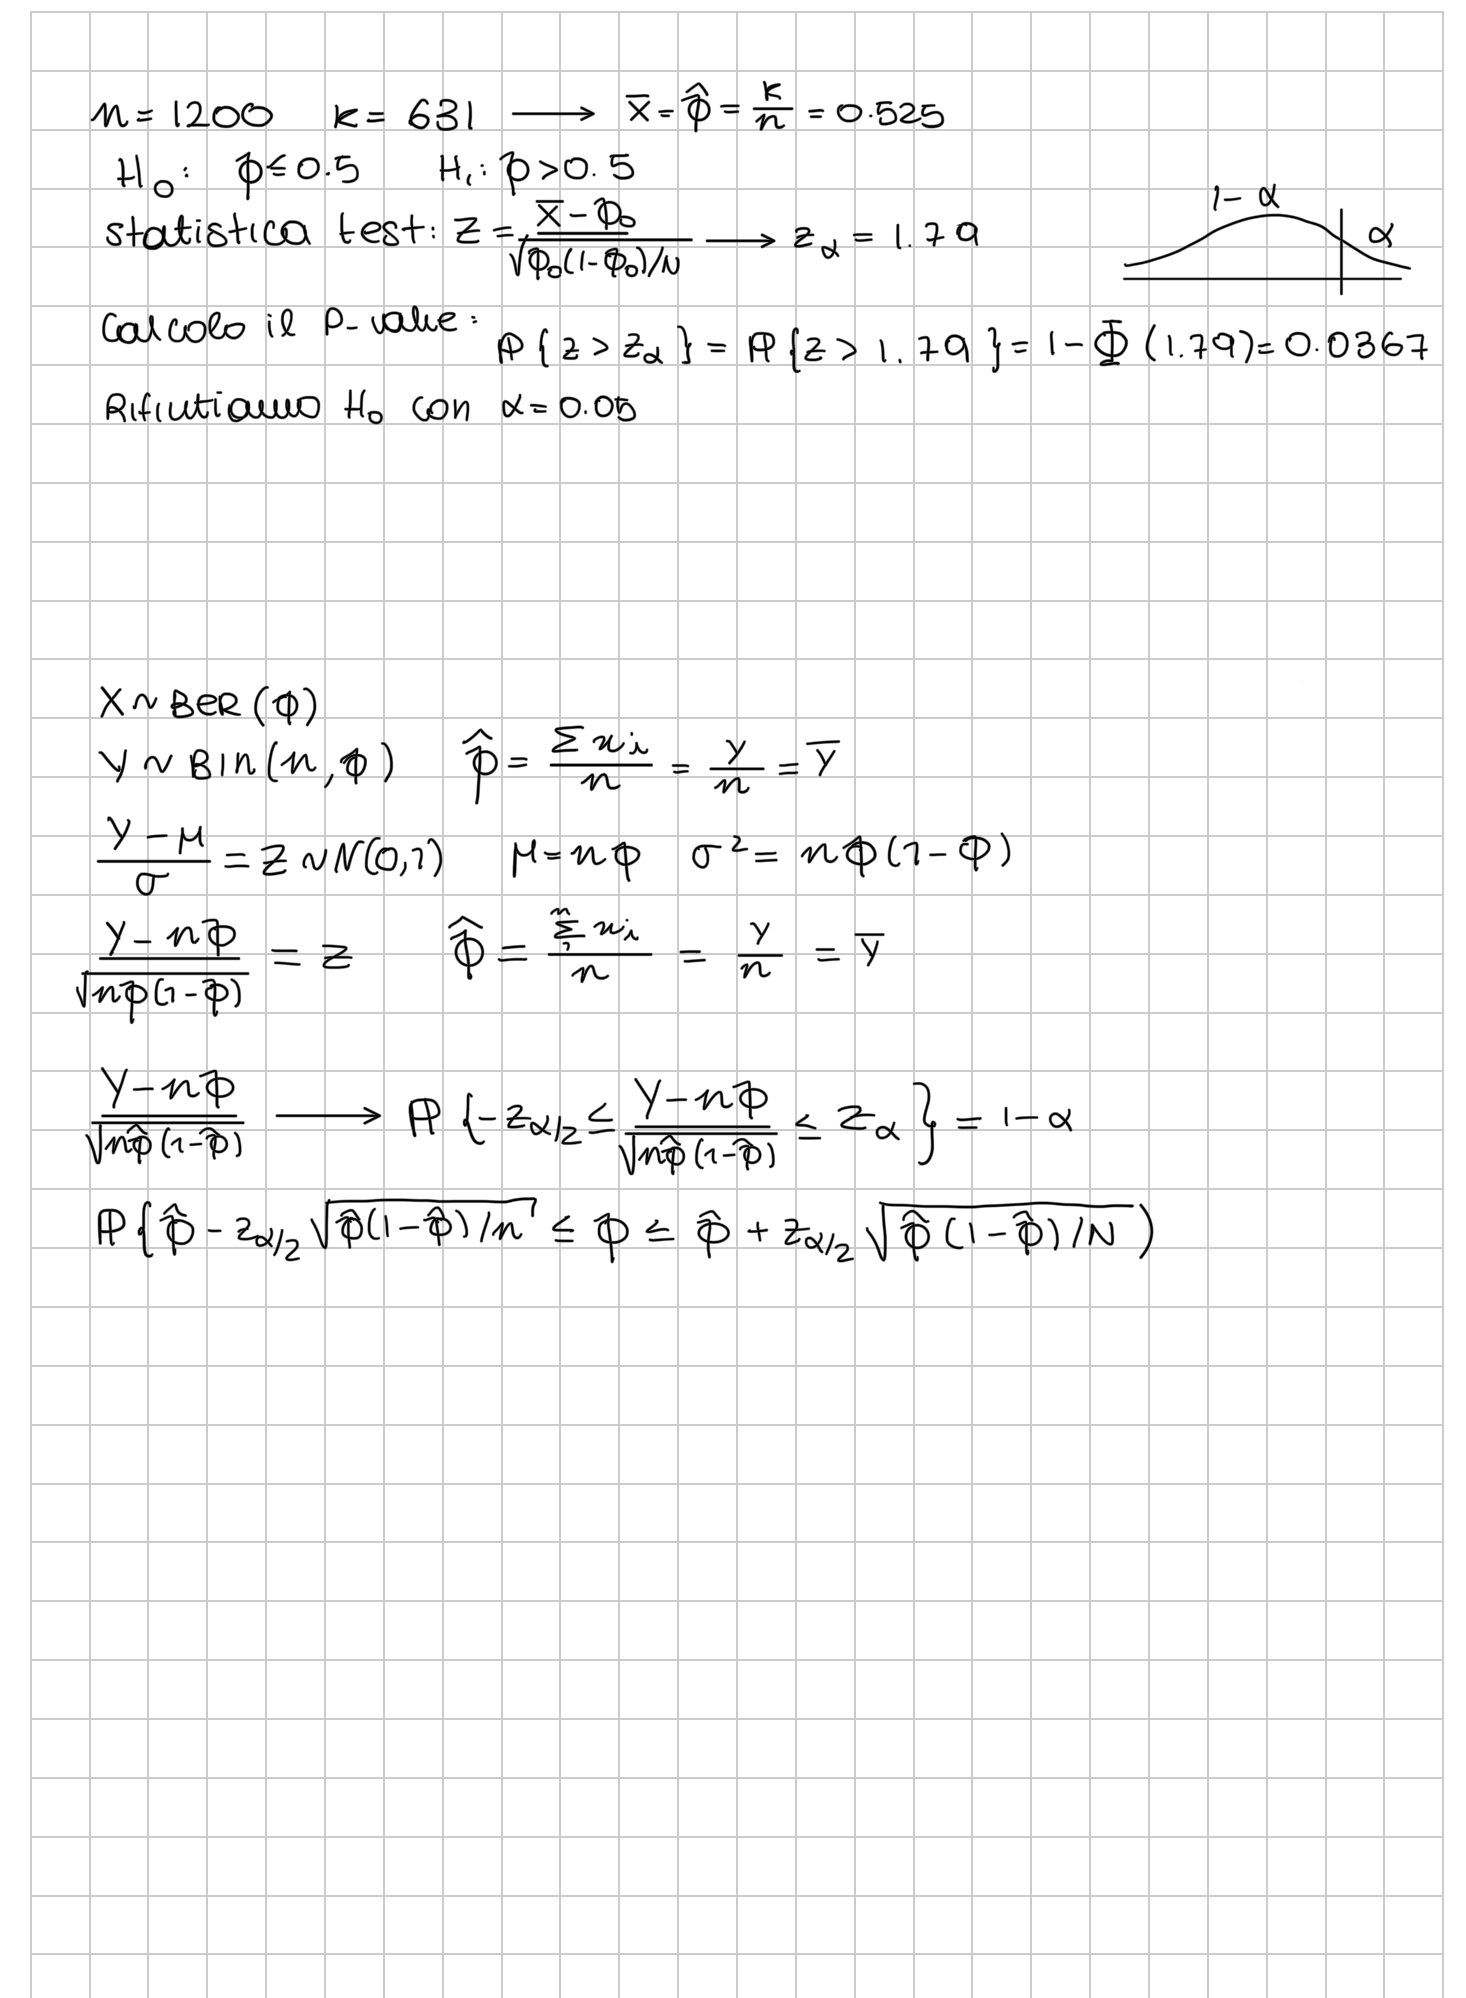 n = 1200 k = 631 ⟶ x̄ = p̂ = k/n = 0.525
H₀: p ≤ 0.5 H₁: p > 0.5
statistica test: Z = (x̄ - p₀)/√(p₀(1-p₀)/N) ⟶ z_α = 1.79
1 - α α
calcolo il P-value: ℙ{z > z_α} = ℙ{z > 1.79} = 1 - Φ(1.79) = 0.0367
Rifiutiamo H₀ con α = 0.05
X ~ BER(p)
Y ~ BIN(n, p) p̂ = Σxᵢ/n = y/n = ȳ
(Y - μ)/σ = Z ~ N(0,1) μ = np σ² = np(1-p)
(Y - np)/√(np(1-p)) = Z p̂ = Σ₁ⁿxᵢ/n = y/n = ȳ
(Y - np)/√(np̂(1-p̂)) ⟶ ℙ{-z_α/2 ≤ (Y - np)/√(np̂(1-p̂)) ≤ z_α} = 1 - α
ℙ{p̂ - z_α/2 √(p̂(1-p̂)/n) ≤ p ≤ p̂ + z_α/2 √(p̂(1-p̂)/N))